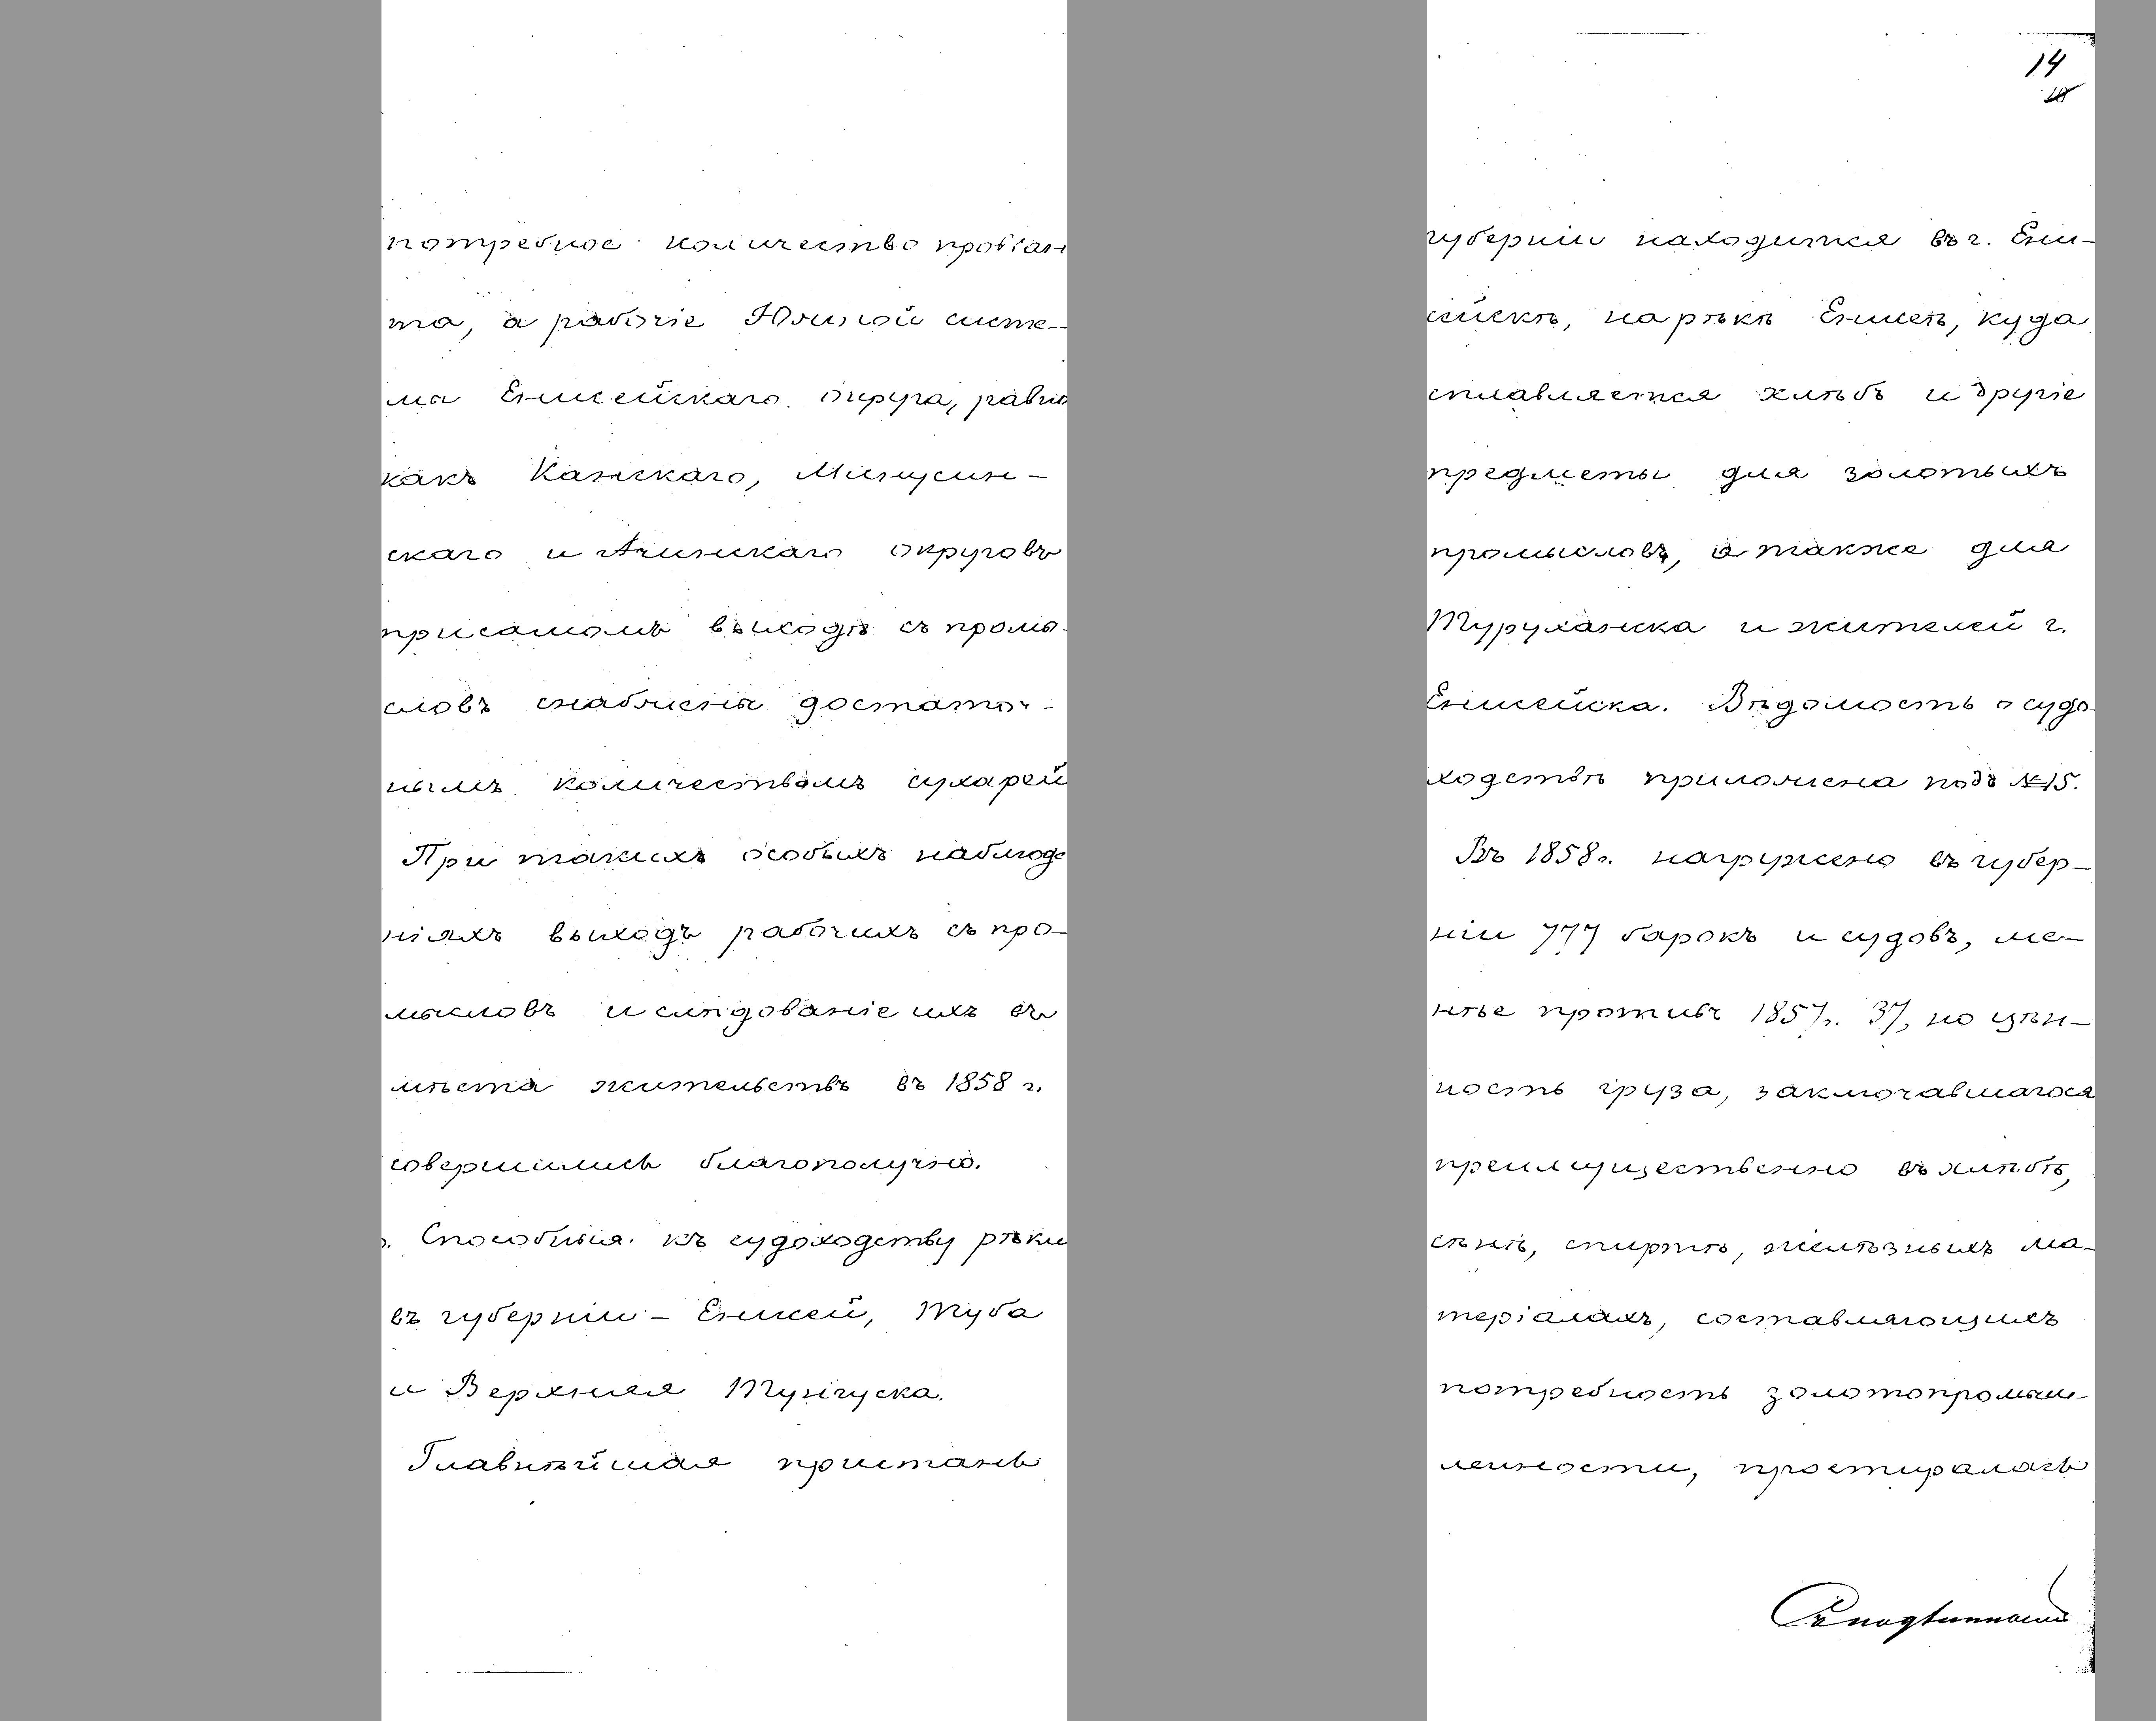 потребное количество провіан
та, а рабочіе Южной систе-
мы Енисейскаго округа, равно
какъ Канскаго, Минусин-
скаго и Ачинскаго округовъ
при самомъ выходѣ съ промы-
словъ снабжены достаточ-
нымъ количествомъ сухарей
При такихъ особыхъ наблюде
ніяхъ выходъ рабочихъ съ про-
мысловъ и слѣдованіе ихъ въ
мѣста жительствъ въ 1858 г.
совершились благополучно.
Способныя къ судоходству рѣки
въ губерніи - Енисей, Туба
и Верхняя Тунгуска.
Главнѣйшая пристань
14
10
губерніи находится въ г. Ени-
сейскѣ, на рѣкѣ Енисеѣ, куда
сплавляется хлѣбъ и другіе
предметы для золотыхъ
промысловъ, а также для
Туруханска и жителей г.
Енисейска. Вѣдомость о судо-
ходствѣ приложена подъ №15.
Въ 1858 г. нагружено въ губер-
ніи 777 барокъ и судовъ, ме-
нѣе противъ 1857 г. 37, но цѣн-
ность груза, заключавшагося
преимущественно въ хлѣбѣ,
сѣнѣ, спиртѣ, желѣзныхъ ма-
теріалахъ, составляющихъ
потребность золотопромыш-
ленности, простиралась
Съ подлиннымъ